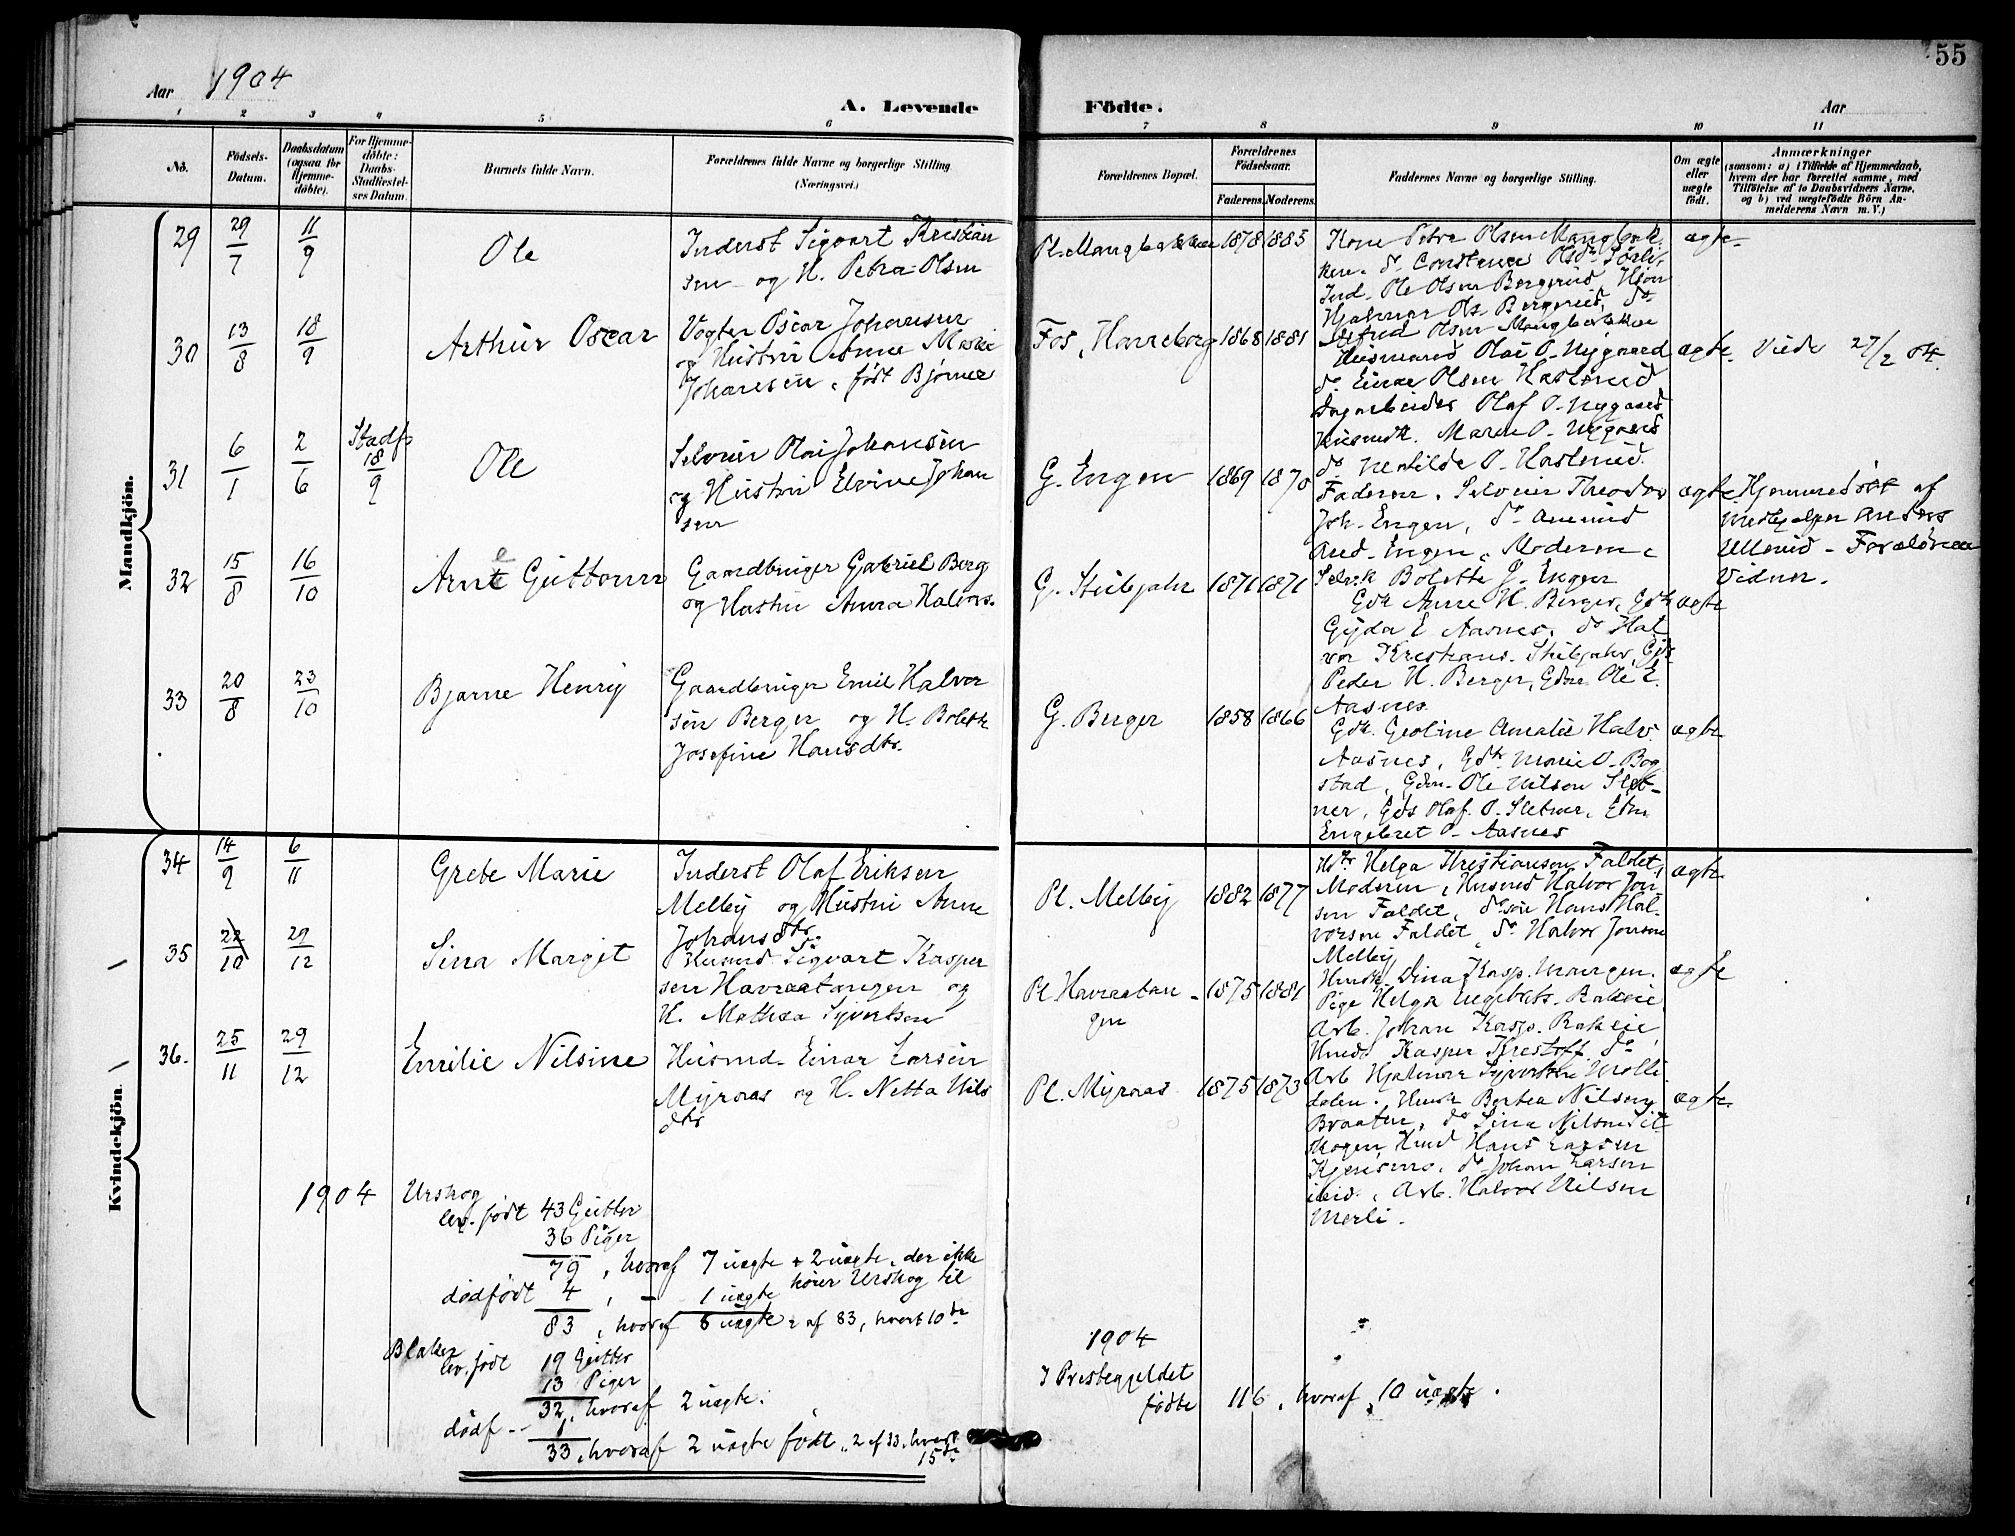 55
Aar 1904
A. Levende
Födte.
Aar
1 2 3 4 5 6
7 8 9 10 11
No.
Födsels-
Datum.
Daabsdatum
(ogsaa for
Hjemme-
döbte).
For Hjemme-
döbte:
Daabs-
Stadfæstel-
ses Datum.
Barnets fulde Navn.
Forældrenes fulde Navne og borgerlige Stilling.
(Næringsvei.)
Forældrenes Bopæl.
Forældrenes
Födselsaar.
Faderens. Moderens.
Faddernes Navne og borgerlige Stilling.
Om ægte
eller
uægte
födt.
Anmærkninger
(saasom: a) i Tilfælde af Hjemmedaab,
hvem der har forrettet samme, med
Tilföielse af to Daabsvidners Navne.
og b) ved uægtefödte Börn An-
melderens Navn m.V.)
Mandkjön.
29
29/7
11/9
Ole
Inderst Sigvart Kristian
sen og H. Petra Olsen
Pl. Mangbakken 1878 1885
Kone Petra Olsen Mangbak-
ken. do Constance Olsdr
Ind. Ole Olsen Bergerud,
Hjalmar Ols. Bergerud, do
Olsen Mangbakken
ægte
30
13/8
18/9
Arthur Oscar
Vogter Oscar Johansen
og Hustru Anne Marie
Johansen, født Bjørner
Fos, Hanneborg 1868 1881
Husmand Olai O. Nygaard
do Einar Olsen Haslerud
Dagarbeider Olaf O. Nygaard
Husmdk. Maren O. Nygaard
do Matilde O. Haslerud.
ægte. Viede 27/2 04.
31
6/1
2/6
Stadf. 18/9
Ole
Selveier Olai Johansen
og Hustru Elvine Johan
sen
G. Engen 1869 1870
Faderen, Selveier Theodor
Joh. Engen, do
And. Engen, Moderen,
Selvk Bolette G. Engen
ægte Hjemmedøbt af
Anders
Ullerud - Forældrene
Vidner.
32
15/8
16/10
Arne Guttorm
Gaardbruger Gabriel Berg
og Hustru Anna Halvors.
G. 1871 1871
Gdk Anne H. Berger, Gdk
Gyda E. Aasnes, do Hal
vor Kristians.
Peder H. Berger, Gdm Ole E.
Aasnes
ægte
33
20/8
23/10
Bjarne Henry
Gaardbruger Emil Halvor
sen Berger og H. Bolette
Josefine Hansdtr.
G. Berger 1858 1866
Gdk. Geoline Amalie Halv.
Aasnes, Gdk Marie O. Bog
stad, Gdm. Ole Nilsen Slet-
ner, Gds Olaf O. Sletner, Gdm
Engebret O. Aasnes
ægte
Kvindekjön.
34
14/9
6/11
Grete Marie
Inderst Olaf Eriksen
Melby og Hustru Anne
Johansdtr.
Pl. Melby 1882 1877
Helga Kristiansen Faldet,
Moderen, Husmd Halvor Jon
sen Faldet, do søn Hans Hal-
vorsen Faldet, do Halvor Jonsen
Melby
ægte
35
22/10
29/12
Sina Margit
Husmd Sigvart Kasper
sen Havraatangen og
H. Mathea Syvertsen
Pl Havraatan- 1875 1881
gen
Husk. Dina Kasp.
Pige Helga Engebrets. Bakeie
Arb. Johan Kasp. Bakeie,
Husmd Kasper Kristoff. do,
Arb Hjalmar Syvertsen
dalen.
ægte
36.
25/11
29/12
Emilie Nilsine
Husmd. Einar Larsen
Myraas og H. Netta Nils
dtr
Pl. Myraas 1875 1873
Husk Bertea Nilsen
Braaten, do Sina Nilsen
Skogen, Husmd Hans Larsen
do Johan Larsen
ibid., Arb. Halvor Nilsen
Merli.
ægte.
1904 Urskog
lev. født 43 Gutter
36 Piger
79, hvoraf 7 uægte + 2 uægte, der ikke
hører Urskog til
dødfødt 4, - 1 uægte
83, hvoraf 8 uægte : af 83, hvert 10de
Blaker
lev. født 19 Gutter
13 Piger
32, hvoraf 2 uægte.
dødf -- 1
33, hvoraf 2 uægte født, 2 af 33, hvert
15de
1904
I Prestegjeldet
fødte 116, hvoraf 10 uægte.